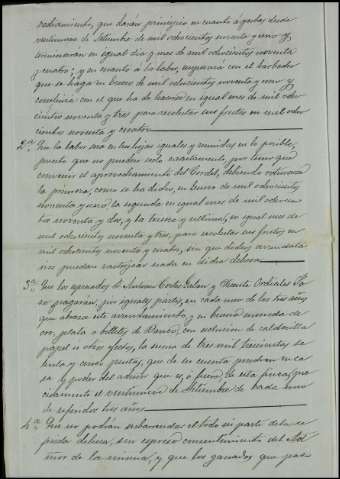 ordinamiento, que darán principio en cuanto á yerbas desde
veintinueve de Setiembre de mil ochocientos noventa y uno y
terminarán en igual dia y mes de mil ochocientos noventa
y cuatro; y en cuanto á la labor, empezará con el barbecho
que se haga en Enero de mil ochocientos noventa y uno y
concluirá con el que ha de hacerse en igual mes de mil ocho
cientos noventa y tres para recolectar sus frutos en mil ocho
cientos noventa y cuatro.
2ª. Que la labor será en tres hojas iguales y reunidas en lo posible,
puesto que no pueden serlo exactamente, por tener que
convenir el aprovechamiento del Cordel, debiendo
la primera, como se ha dicho, en Enero de mil ochocientos
noventa y uno, la segunda en igual mes de mil ochocien
tos noventa y dos, y la tercera y última, en igual mes de
mil ochocientos noventa y tres, para recolectar sus frutos en
mil ochocientos noventa y cuatro, sin que dichos arrendata
rios puedan rastrojear nada en dicha dehesa.
3ª. Que los espresados D. Antonio y Vicente Ordiales
pagarán, por iguales partes, en cada uno de los tres años
que abarca este arrendamiento, y en buena moneda de
oro, plata ó billetes de Banco, con esclusion de calderilla
papel ú otros efectos, la suma de tres mil trescientas se
tenta y cinco pesetas, que de su cuenta pondrán en ca
sa y poder del Señor que es, ó fuere, de esta finca, pre
cisamente el veintinueve de Setiembre de cada uno
de referidos tres años.
4ª. Que no podrán subarrendar el todo ni parte de la es
presada dehesa, sin espreso consentimiento del Ad
ministrador de la misma, y que los ganados que pas